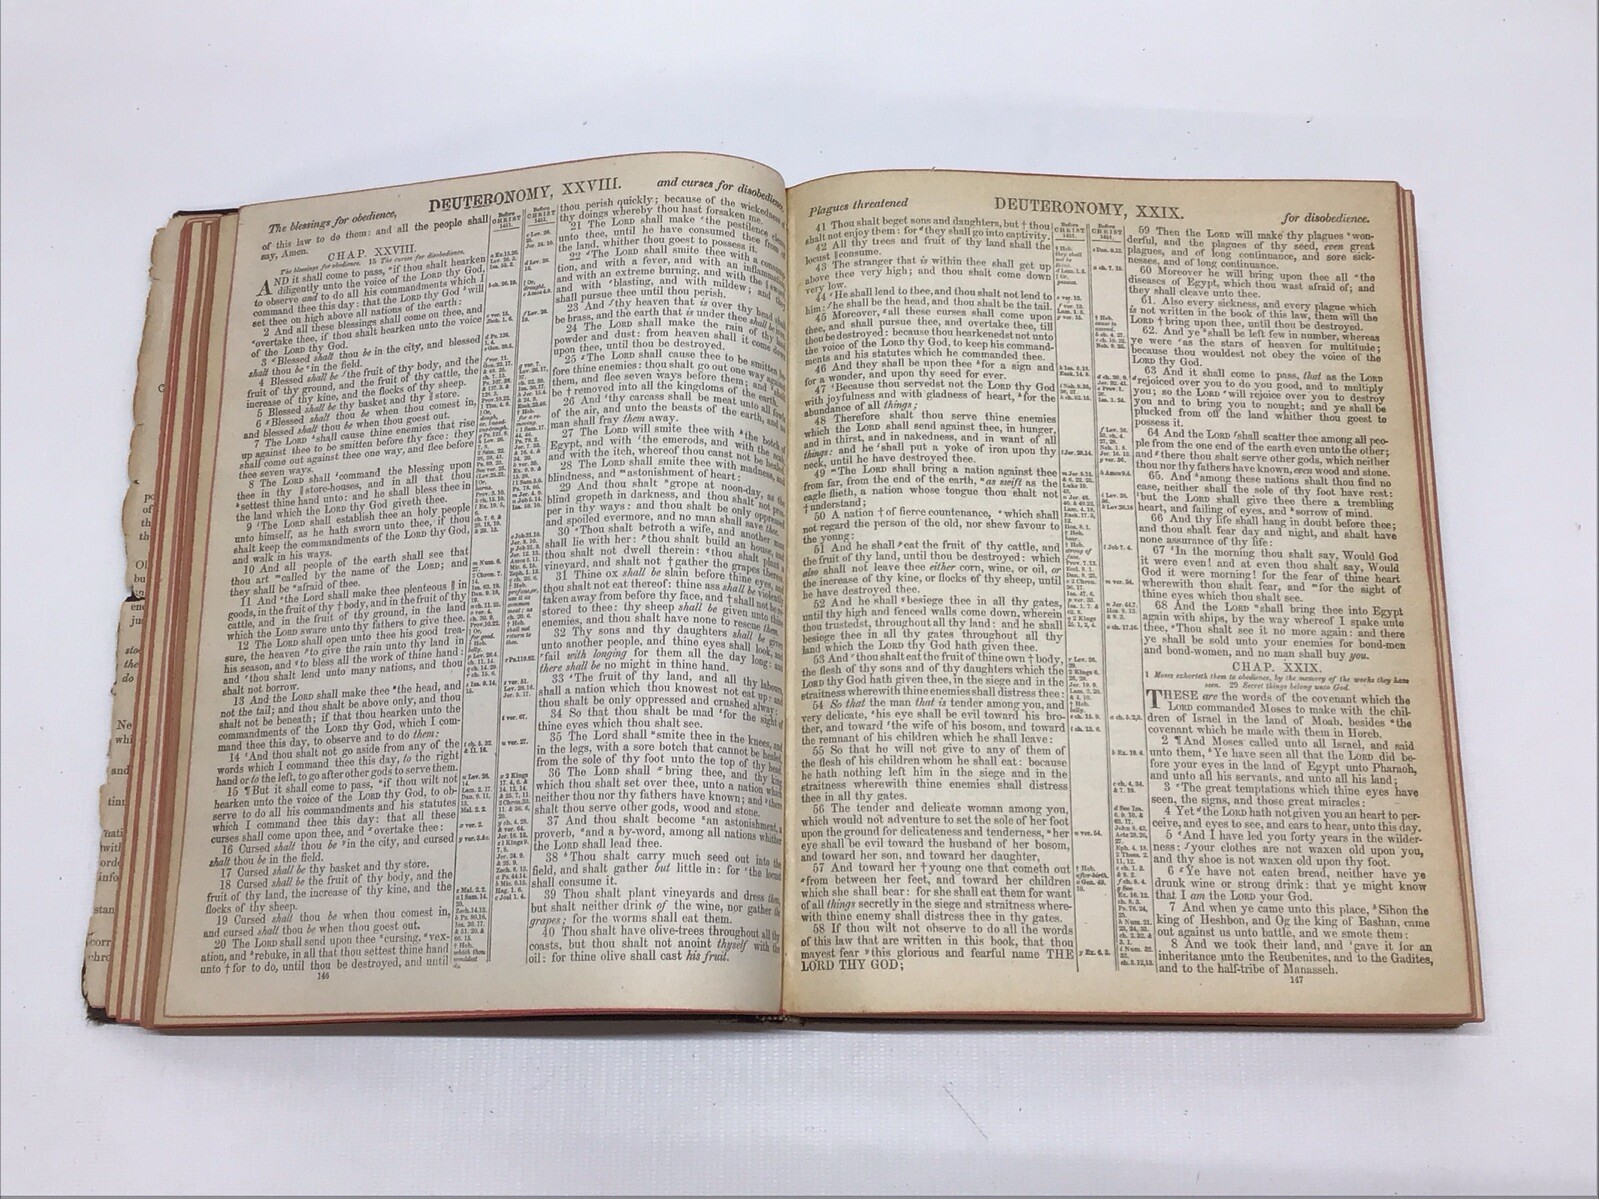 The blessings for obedience,
DEUTERONOMY, XXVIII.
and curses for disobedience.
of this law to do them: and all the people shall
say, Amen.
CHAP. XXVIII.
The blessings for obedience. 15 The curses for disobedience.
AND it shall come to pass, if thou shalt hearken
diligently unto the voice of the LORD thy God,
to observe and to do all his commandments which I
command thee this day: that the LORD thy God will
set thee on high above all nations of the earth:
2 And all these blessings shall come on thee, and
overtake thee, if thou shalt hearken unto the voice
of the LORD thy God.
3 Blessed shalt thou be in the city, and blessed
shalt thou be in the field.
4 Blessed shall be the fruit of thy body, and the
fruit of thy ground, and the fruit of thy cattle, the
increase of thy kine, and the flocks of thy sheep.
5 Blessed shall be thy basket and thy store.
6 Blessed shalt thou be when thou comest in,
and blessed shalt thou be when thou goest out.
7 The LORD shall cause thine enemies that rise
up against thee to be smitten before thy face: they
shall come out against thee one way, and flee before
thee seven ways.
8 The LORD shall command the blessing upon
thee in thy store-houses, and in all that thou
settest thine hand unto: and he shall bless thee in
the land which the LORD thy God giveth thee.
9 The LORD shall establish thee an holy people
unto himself, as he hath sworn unto thee, if thou
shalt keep the commandments of the LORD thy God,
and walk in his ways.
10 And all people of the earth shall see that
thou art called by the name of the LORD; and
they shall be afraid of thee.
11 And the LORD shall make thee plenteous in
goods, in the fruit of thy body, and in the fruit of thy
cattle, and in the fruit of thy ground, in the land
which the LORD sware unto thy fathers to give thee.
12 The LORD shall open unto thee his good trea-
sure, the heaven to give the rain unto thy land in
his season, and to bless all the work of thine hand:
and thou shalt lend unto many nations, and thou
shalt not borrow.
13 And the LORD shall make thee the head, and
not the tail; and thou shalt be above only, and thou
shalt not be beneath; if that thou hearken unto the
commandments of the LORD thy God, which I com-
mand thee this day, to observe and to do them:
14 And thou shalt not go aside from any of the
words which I command thee this day, to the right
hand or to the left, to go after other gods to serve them.
15 ¶ But it shall come to pass, if thou wilt not
hearken unto the voice of the LORD thy God, to ob-
serve to do all his commandments and his statutes
which I command thee this day: that all these
curses shall come upon thee, and overtake thee:
16 Cursed shalt thou be in the city, and cursed
shalt thou be in the field.
17 Cursed shall be thy basket and thy store.
18 Cursed shall be the fruit of thy body, and the
fruit of thy land, the increase of thy kine, and the
flocks of thy sheep.
19 Cursed shalt thou be when thou comest in,
and cursed shalt thou be when thou goest out.
20 The LORD shall send upon thee cursing, vex-
ation, and rebuke, in all that thou settest thine hand
unto † for to do, until thou be destroyed, and until
146
Before
CHRIST
1451.
Before
CHRIST
1451.
thou perish quickly; because of the wickedness of
thy doings whereby thou hast forsaken me.
21 The LORD shall make the pestilence cleave
unto thee, until he have consumed thee from
the land, whither thou goest to possess it.
22 The LORD shall smite thee with a
tion, and with a fever, and with an
and with an extreme burning, and with the
and with blasting, and with mildew; and they
shall pursue thee until thou perish.
23 And thy heaven that is over thy head shall
be brass, and the earth that is under thee shall be
24 The LORD shall make the rain of thy land
powder and dust: from heaven shall it come down
upon thee, until thou be destroyed.
25 The LORD shall cause thee to be smitten be-
fore thine enemies: thou shalt go out one way against
them, and flee seven ways before them; and shalt
be † removed into all the kingdoms of the earth.
26 And thy carcass shall be meat unto all fowls
of the air, and unto the beasts of the earth, and no
man shall fray them away.
27 The LORD will smite thee with the botch of
Egypt, and with the emerods, and with the scab,
and with the itch, whereof thou canst not be healed.
28 The LORD shall smite thee with madness, and
blindness, and astonishment of heart:
29 And thou shalt grope at noon-day, as the
blind gropeth in darkness, and thou shalt not pros-
per in thy ways: and thou shalt be only oppressed
and spoiled evermore, and no man shall save thee.
30 Thou shalt betroth a wife, and another man
shall lie with her: thou shalt build an house, and
thou shalt not dwell therein: thou shalt plant a
vineyard, and shalt not † gather the grapes thereof.
31 Thine ox shall be slain before thine eyes, and
thou shalt not eat thereof: thine ass shall be violently
taken away from before thy face, and † shall not be re-
stored to thee: thy sheep shall be given unto thine
enemies, and thou shalt have none to rescue them.
32 Thy sons and thy daughters shall be given
unto another people, and thine eyes shall look, and
fail with longing for them all the day long: and
there shall be no might in thine hand.
33 The fruit of thy land, and all thy labours,
shall a nation which thou knowest not eat up; and
thou shalt be only oppressed and crushed alway:
34 So that thou shalt be mad for the sight of
thine eyes which thou shalt see.
35 The Lord shall smite thee in the knees, and
in the legs, with a sore botch that cannot be healed,
from the sole of thy foot unto the top of thy head.
36 The LORD shall bring thee, and thy king
which thou shalt set over thee, unto a nation which
neither thou nor thy fathers have known; and there
shalt thou serve other gods, wood and stone.
37 And thou shalt become an astonishment, a
proverb, and a by-word, among all nations whither
the LORD shall lead thee.
38 Thou shalt carry much seed out into the
field, and shalt gather but little in: for the locust
shall consume it.
39 Thou shalt plant vineyards and dress them,
but shalt neither drink of the wine, nor gather the
grapes; for the worms shall eat them.
40 Thou shalt have olive-trees throughout all thy
coasts, but thou shalt not anoint thyself with the
oil: for thine olive shall cast his fruit.
Plagues threatened
DEUTERONOMY, XXIX.
for disobedience.
41 Thou shalt beget sons and daughters, but † thou
shalt not enjoy them: for they shall go into captivity.
42 All thy trees and fruit of thy land shall the
locust consume.
43 The stranger that is within thee shall get up
above thee very high; and thou shalt come down
very low.
44 He shall lend to thee, and thou shalt not lend to
him: he shall be the head, and thou shalt be the tail.
45 Moreover, all these curses shall come upon
thee, and shall pursue thee, and overtake thee, till
thou be destroyed: because thou hearkenedst not unto
the voice of the LORD thy God, to keep his command-
ments and his statutes which he commanded thee.
46 And they shall be upon thee for a sign and
for a wonder, and upon thy seed for ever.
47 Because thou servedst not the LORD thy God
with joyfulness and with gladness of heart, for the
abundance of all things;
48 Therefore shalt thou serve thine enemies
which the LORD shall send against thee, in hunger,
and in thirst, and in nakedness, and in want of all
things: and he shall put a yoke of iron upon thy
neck, until he have destroyed thee.
49 The LORD shall bring a nation against thee
from far, from the end of the earth, as swift as the
eagle flieth, a nation whose tongue thou shalt not
† understand;
50 A nation † of fierce countenance, which shall
not regard the person of the old, nor shew favour to
the young:
51 And he shall eat the fruit of thy cattle, and
the fruit of thy land, until thou be destroyed: which
also shall not leave thee either corn, wine, or oil, or
the increase of thy kine, or flocks of thy sheep, until
he have destroyed thee.
52 And he shall besiege thee in all thy gates,
until thy high and fenced walls come down, wherein
thou trustedst, throughout all thy land: and he shall
besiege thee in all thy gates throughout all thy
land which the LORD thy God hath given thee.
53 And thou shalt eat the fruit of thine own † body,
the flesh of thy sons and of thy daughters which the
LORD thy God hath given thee, in the siege and in the
straitness wherewith thine enemies shall distress thee:
54 So that the man that is tender among you, and
very delicate, his eye shall be evil toward his bro-
ther, and toward the wife of his bosom, and toward
the remnant of his children which he shall leave:
55 So that he will not give to any of them of
the flesh of his children whom he shall eat: because
he hath nothing left him in the siege and in the
straitness wherewith thine enemies shall distress
thee in all thy gates.
56 The tender and delicate woman among you,
which would not adventure to set the sole of her foot
upon the ground for delicateness and tenderness, her
eye shall be evil toward the husband of her bosom,
and toward her son, and toward her daughter,
57 And toward her † young one that cometh out
from between her feet, and toward her children
which she shall bear: for she shall eat them for want
of all things secretly in the siege and straitness where-
with thine enemy shall distress thee in thy gates.
58 If thou wilt not observe to do all the words
of this law that are written in this book, that thou
mayest fear this glorious and fearful name THE
LORD THY GOD;
Before
CHRIST
1451.
Before
CHRIST
1451.
59 Then the LORD will make thy plagues won-
derful, and the plagues of thy seed, even great
plagues, and of long continuance, and sore sick-
nesses, and of long continuance.
60 Moreover he will bring upon thee all the
diseases of Egypt, which thou wast afraid of; and
they shall cleave unto thee.
61 Also every sickness, and every plague which
is not written in the book of this law, them will the
LORD † bring upon thee, until thou be destroyed.
62 And ye shall be left few in number, whereas
ye were as the stars of heaven for multitude;
because thou wouldest not obey the voice of the
LORD thy God.
63 And it shall come to pass, that as the LORD
rejoiced over you to do you good, and to multiply
you; so the LORD will rejoice over you to destroy
you and to bring you to nought; and ye shall be
plucked from off the land whither thou goest to
possess it.
64 And the LORD shall scatter thee among all peo-
ple from the one end of the earth even unto the other;
and there thou shalt serve other gods, which neither
thou nor thy fathers have known, even wood and stone.
65 And among these nations shalt thou find no
ease, neither shall the sole of thy foot have rest:
but the LORD shall give thee there a trembling
heart, and failing of eyes, and sorrow of mind.
66 And thy life shall hang in doubt before thee;
and thou shalt fear day and night, and shalt have
none assurance of thy life:
67 In the morning thou shalt say, Would God
it were even! and at even thou shalt say, Would
God it were morning! for the fear of thine heart
wherewith thou shalt fear, and for the sight of
thine eyes which thou shalt see.
68 And the LORD shall bring thee into Egypt
again with ships, by the way whereof I spake unto
thee, Thou shalt see it no more again: and there
ye shall be sold unto your enemies for bond-men
and bond-women, and no man shall buy you.
CHAP. XXIX.
1 Moses exhorteth them to obedience, by the memory of the works they have
seen. 29 Secret things belong unto God.
THESE are the words of the covenant which the
LORD commanded Moses to make with the chil-
dren of Israel in the land of Moab, besides the
covenant which he made with them in Horeb.
2 ¶ And Moses called unto all Israel, and said
unto them, Ye have seen all that the LORD did be-
fore your eyes in the land of Egypt unto Pharaoh,
and unto all his servants, and unto all his land;
3 The great temptations which thine eyes have
seen, the signs, and those great miracles:
4 Yet the LORD hath not given you an heart to per-
ceive, and eyes to see, and ears to hear, unto this day.
5 And I have led you forty years in the wilder-
ness: your clothes are not waxen old upon you,
and thy shoe is not waxen old upon thy foot.
6 Ye have not eaten bread, neither have ye
drunk wine or strong drink: that ye might know
that I am the LORD your God.
7 And when ye came unto this place, Sihon the
king of Heshbon, and Og the king of Bashan, came
out against us unto battle, and we smote them:
8 And we took their land, and gave it for an
inheritance unto the Reubenites, and to the Gadites,
and to the half-tribe of Manasseh.
147